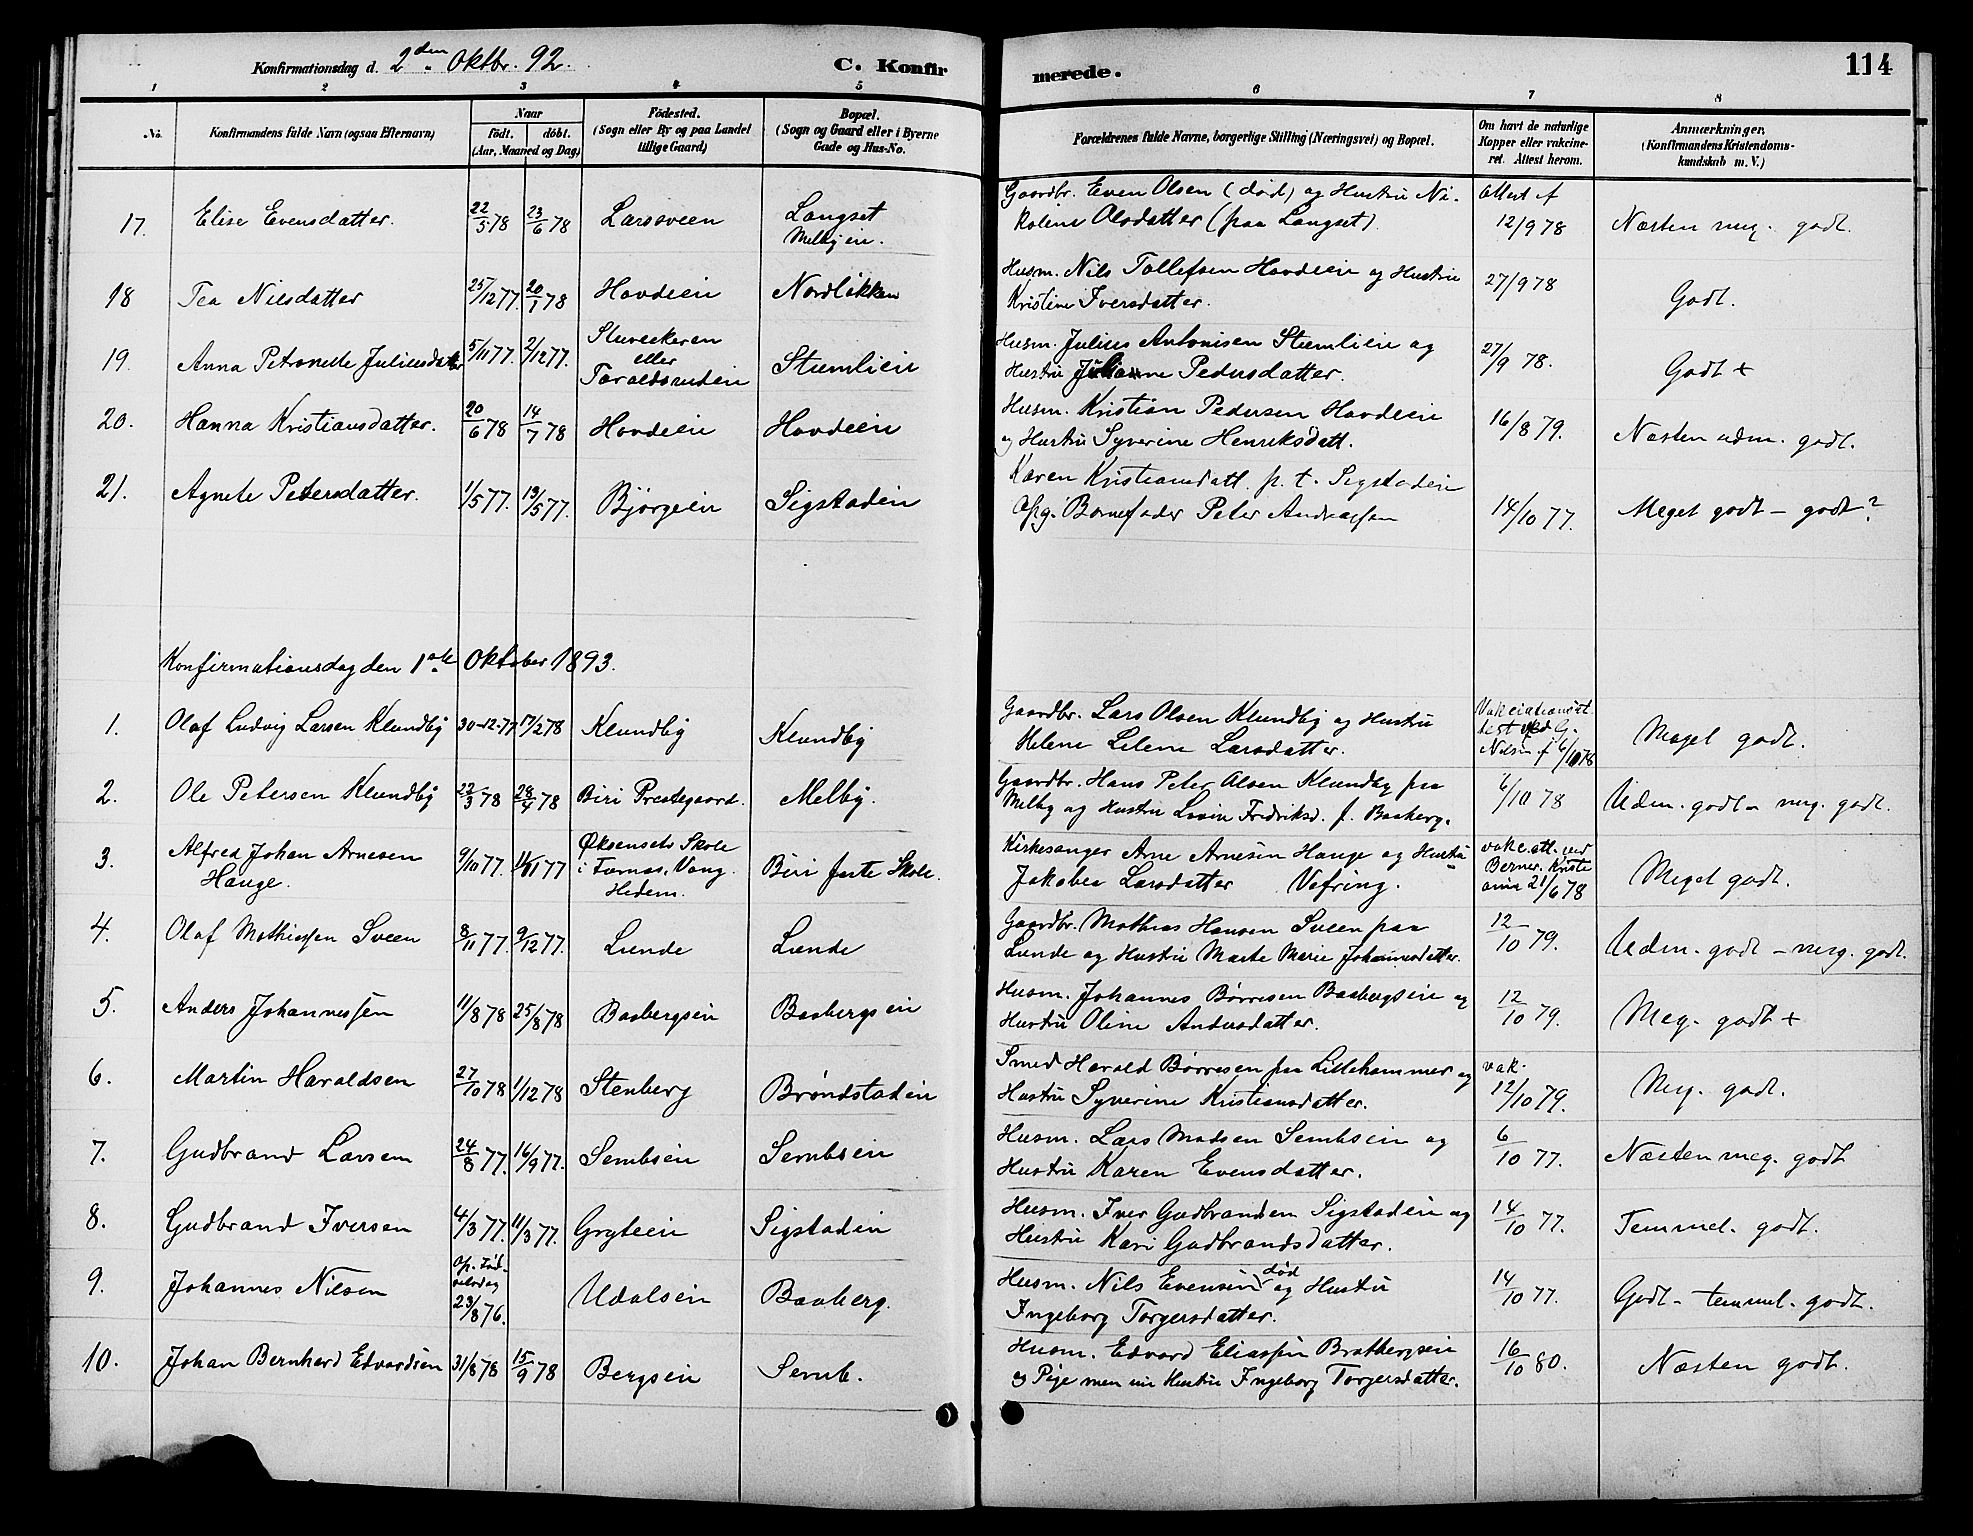 Konfirmationsdag d. 2den Oktbr. 92. C. Konfirmerede. 114
1 2 3 4 5 6 7 8
No. Konfirmandens fulde Navn (ogsaa Efternavn) Naar født. døbt. (Aar, Maaned og Dag) Födested. (Sogn eller By og paa Landet tillige Gaard) Bopæl. (Sogn og Gaard eller i Byerne Gade og Hus-No. Forældrenes fulde Navne, borgerlige Stilling (Næringsvei) og Bopæl. Om havt de naturlige Kopper eller vakcineret. Attest herom. Anmærkninger. (Konfirmandens Kristendomskundskab m. V.)
17. Elise Evensdatter. 22/5 78 23/6 78 Larssveen Langset Melbyein. Gaardbr. Even Olsen (død) og Hustru Nikoline Olsdatter (paa Langset). Attest f 12/9 78 Næsten meg. godt.
18 Tea Nilsdatter 25/12 77. 20/1 78 Hovdeien Nordlökken Husm. Nils Tollefsen Hovdeien og Hustru Kristine Iversdatter. 27/9 78 Godt.
19. Anna Petronelle Juliusdatter 5/11 77. 2/12 77. Stuveekeren eller Toraldsrudein Stumlien Husm. Julius Antonisen Stumlien og Hustru Juliane Pedersdatter. 27/9 78. Godt +
20. Hanna Kristiansdatter. 20/6 78 14/7 78 Hovdeien Hovdeien Husm. Kristian Pedersen Hovdeien og Hustru Syverine Henriksdatt. 16/8 79. Næsten udm. godt.
21. Agnete Petersdatter. 1/5 77. 13/5 77. Bjørgeien Sigstadein Karen Kristiansdatt. p. t. Sigstadein Opg. Barnefader Peter Andreassen 14/10 77. Meget godt - godt?
Konfirmationsdag den 1ste Oktober 1893.
1. Olaf Ludvig Larsen Klundby 30-12-77 17/2 78 Klundby Klundby Gaardbr. Lars Olsen Klundby og Hustru Helene Larsdatter. 6/10 78 Meget godt.
2. Ole Petersen Klundby 22/3 78 28/4 78 Biri Prestegaard. Melby. Gaardbr. Hans Peter Olsen Klundby paa Melby og Hustru Lovine Fredriksd. f. Baaberg. 6/10 78 Udm. godt - meg. godt.
3. Alfred Johan Arnesen Hauge. 9/10 77. 11/11 77 Øksensets Skole i Furnes, Vang. Hedem. Biri faste Skole. Kirkesanger Arne Arnesen Hauge og Hustru Jakobea Larsdatter Vefring. vakc. att. ved Berner. Kristiania 21/6 78 Meget godt.
4. Olaf Mathiesen Sveen 8/11 77. 9/12 77. Lunde Lunde Gaardbr. Mathias Hansen Sveen paa Lunde og Hustru Marte Marie Johannesdatter. 12/10 79. Udm. godt - meg. godt.
5. Anders Johannessen 11/8 78 25/8 78 Baabergsein Baabergsein Husm. Johannes Børresen Baabergsein og Hustru Oline Andersdatter. 12/10 79. Meg. godt +
6. Martin Haraldsen 27/10 78 1/12 78 Stenberg Brøndstadein Smed Harald Børresen paa Lillehammer og Hustru Syverine Kristiansdatter. vak. 12/10 79. Meg. godt.
7. Gudbrand Larsen 24/8 77. 16/9 77. Sembsein Sembsein Husm. Lars Madsen Sembsein og Hustru Karen Evensdatter. 6/10 77. Næsten meg. godt
8. Gudbrand Iversen 4/3 77. 11/3 77. Gryteein Sigstadein Husm. Iver Gudbrandsen Sigstadein og Hustru Kari Gudbrandsdatter. 14/10 77. Temmel. godt.
9. Johannes Nilsen 23/8 76. Udalsein Baaberg. Husm. Nils Evensen død og Hustru Ingeborg Torgersdatter. 14/10 77. Godt - temmel. godt.
10. Johan Bernhard Edvardsen 31/8 78 15/9 78 Bergsein Semb. Husm. Edvard Eliassen Bratbergsein og Pige men nu Hustru Ingeborg Torgersdatter. 16/10 80. Næsten godt.